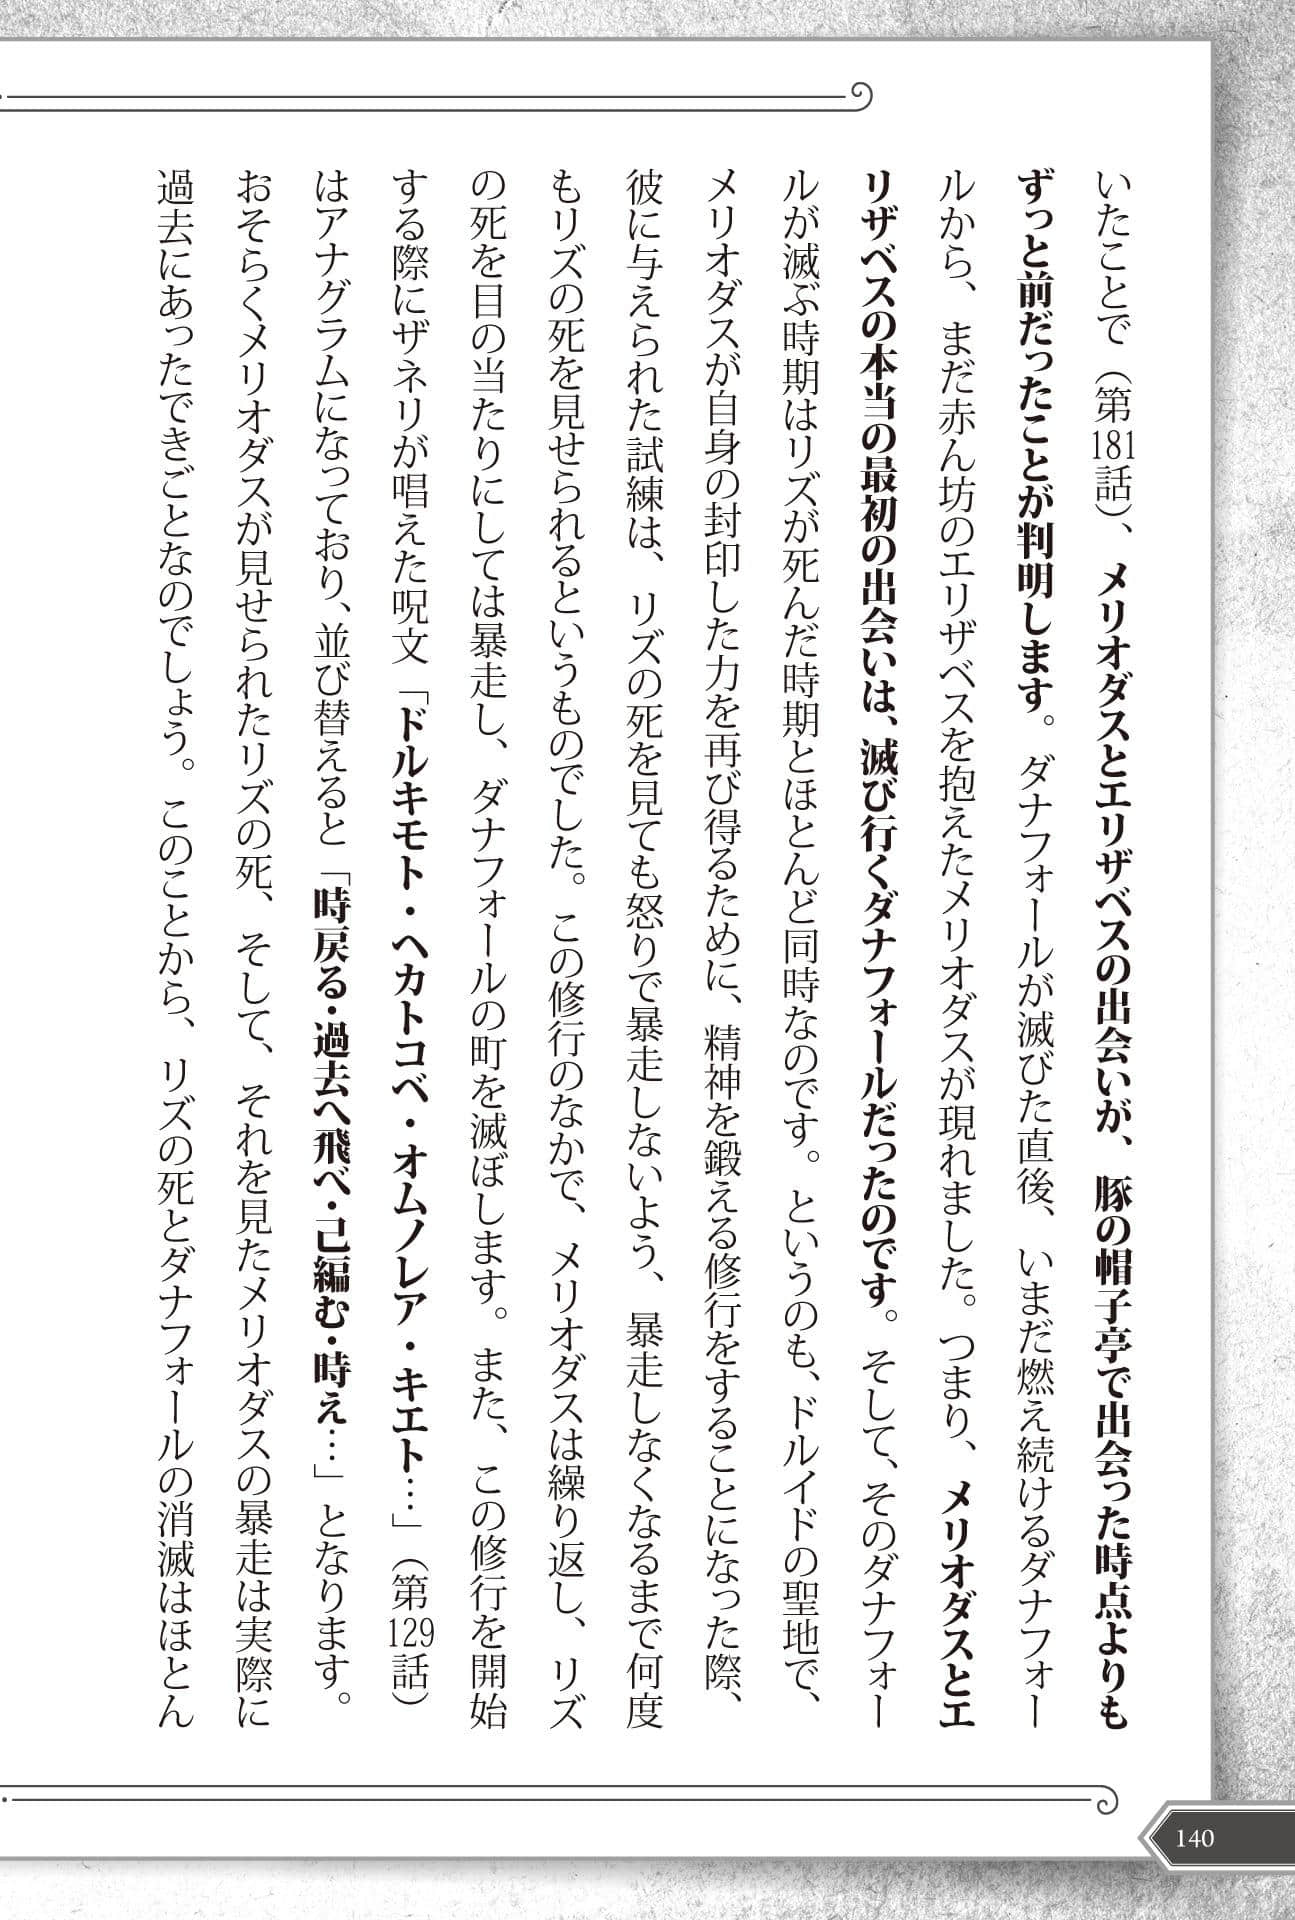 いたことで（第181話）、メリオダスとエリザベスの出会いが、豚の帽子亭で出会った時点よりも
ずっと前だったことが判明します。ダナフォールが滅びた直後、いまだ燃え続けるダナフォー
ルから、まだ赤ん坊のエリザベスを抱えたメリオダスが現れました。つまり、メリオダスとエ
リザベスの本当の最初の出会いは、滅び行くダナフォールだったのです。そして、そのダナフォー
ルが滅ぶ時期はリズが死んだ時期とほとんど同時なのです。というのも、ドルイドの聖地で、
メリオダスが自身の封印した力を再び得るために、精神を鍛える修行をすることになった際、
彼に与えられた試練は、リズの死を見ても怒りで暴走しないよう、暴走しなくなるまで何度
もリズの死を見せられるというものでした。この修行のなかで、メリオダスは繰り返し、リズ
の死を目の当たりにしては暴走し、ダナフォールの町を滅ぼします。また、この修行を開始
する際にザネリが唱えた呪文「ドルキモト・ヘカトコベ・オムノレア・キエト…」（第129話）
はアナグラムになっており、並び替えると「時戻る・過去へ飛べ・己編む・時え…」となります。
おそらくメリオダスが見せられたリズの死、そして、それを見たメリオダスの暴走は実際に
過去にあったできごとなのでしょう。このことから、リズの死とダナフォールの消滅はほとん
140